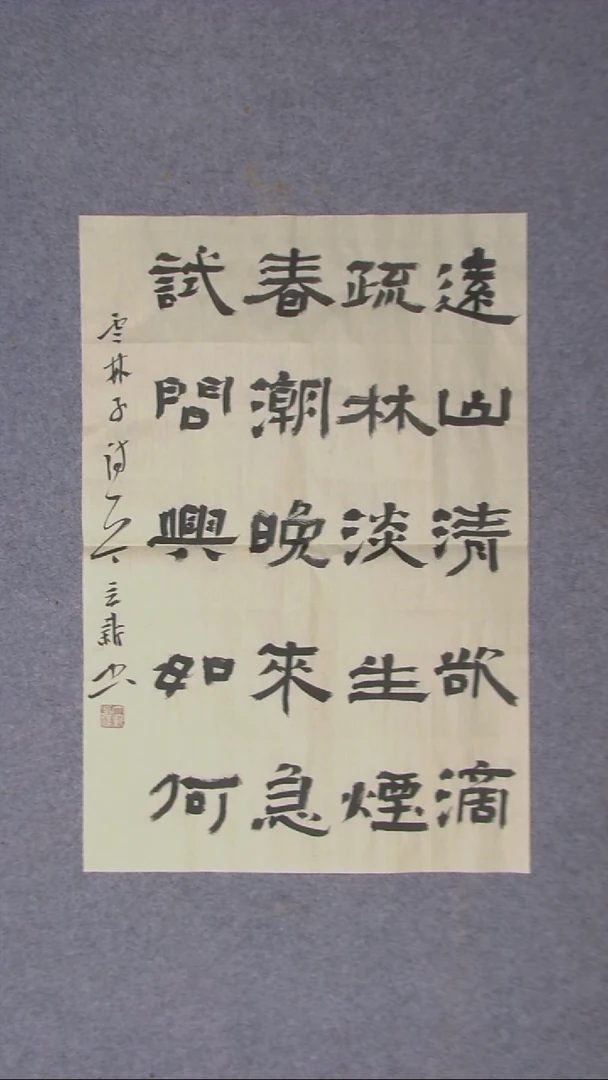 遠山清欲滴
疏林淡生煙
春潮晚來急
試問興如何
雲林子詩
書